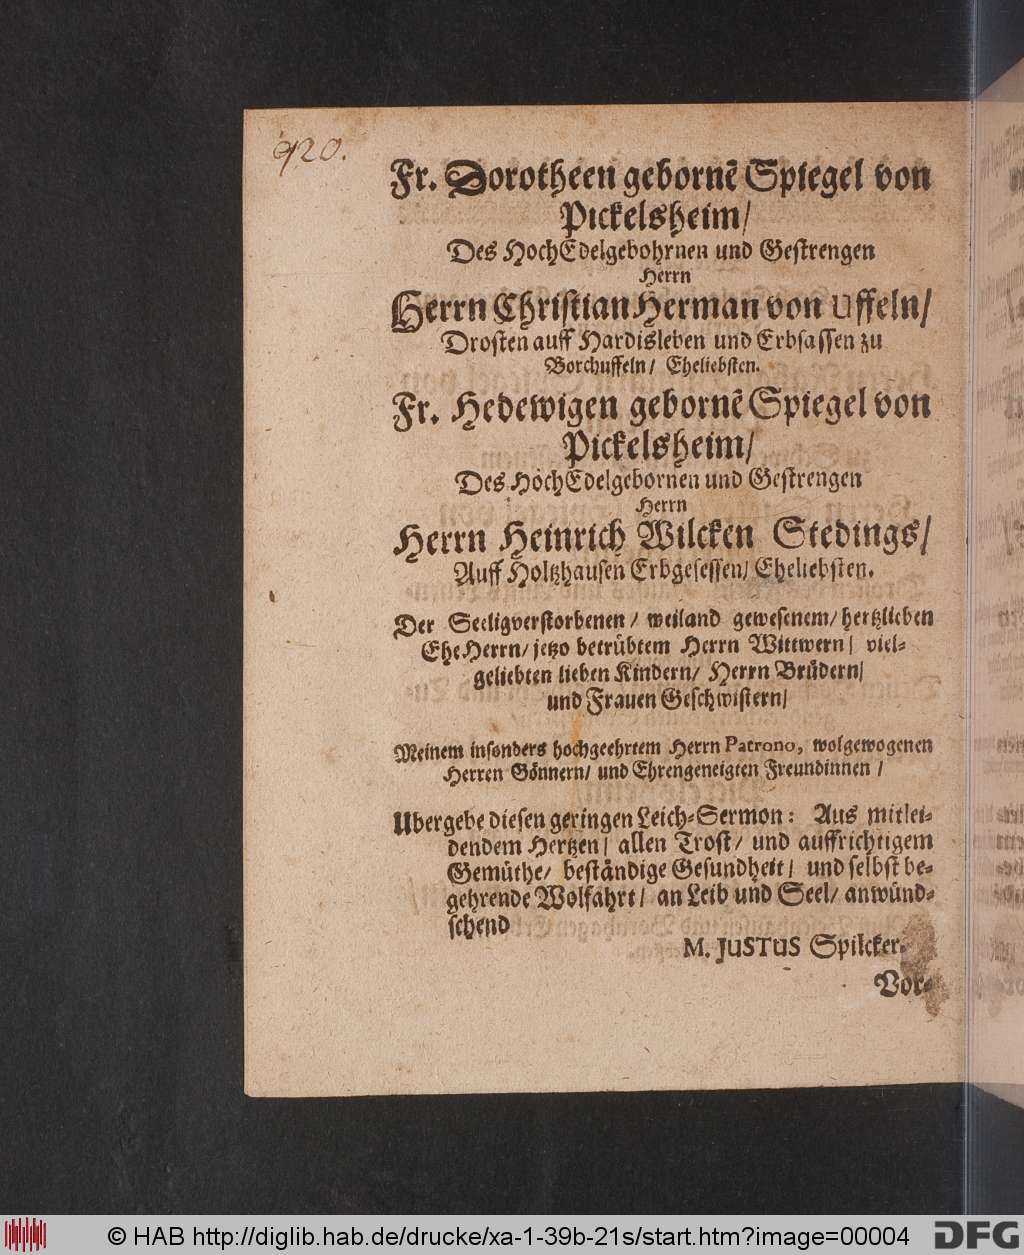 920.
Fr. Dorotheen gebornẽ Spiegel von
Pickelsheim/
Des HochEdelgebohrnen und Gestrengen
Herrn
Herrn Christian Herman von Uffeln/
Drosten auff Hardisleben und Erbsassen zu
Borchuffeln/ Eheliebsten.
Fr. Hedewigen gebornẽ Spiegel von
Pickelsheim/
Des HochEdelgebornen und Gestrengen
Herrn
Herrn Heinrich Wilcken Stedings/
Auff Holtzhausen Erbgesessen/ Eheliebsten.
Der Seeligverstorbenen/ weiland gewesenem/ hertzlieben
EheHerrn/ jetzo betrübtem Herrn Wittwern/ viel-
geliebten lieben Kindern/ Herrn Brüdern/
und Frauen Geschwistern/
Meinem insonders hochgeehrtem Herrn Patrono, wolgewogenen
Herren Gönnern/ und Ehrengeneigten Freundinnen/
Ubergebe diesen geringen Leich-Sermon: Aus mitlei-
dendem Hertzen/ allen Trost/ und auffrichtigem
Gemüthe/ beständige Gesundheit/ und selbst be-
gehrende Wolfahrt/ an Leib und Seel/ anwünd-
schend
M. JUSTUS Spilcker.
Vor-
© HAB http://diglib.hab.de/drucke/xa-1-39b-21s/start.htm?image=00004
DFG